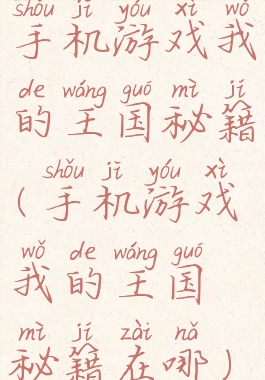 shǒu jī yóu xì wǒ
手机游戏我
de wáng guó mì jí
的王国秘籍
shǒu jī yóu xì
(手机游戏
wǒ de wáng guó
我的王国
mì jí zài nǎ
秘籍在哪)